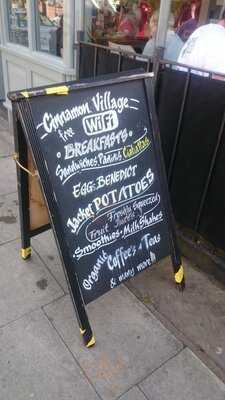 Cinnamon Village
free WiFi
BREAKFASTS
Sandwiches Paninis Ciabattas
EGG BENEDICT
Jacket POTATOES
Freshly Squeezed
Fruit Juices
Smoothies • MilkShakes
Organic Coffee's & Teas
& many more!!!